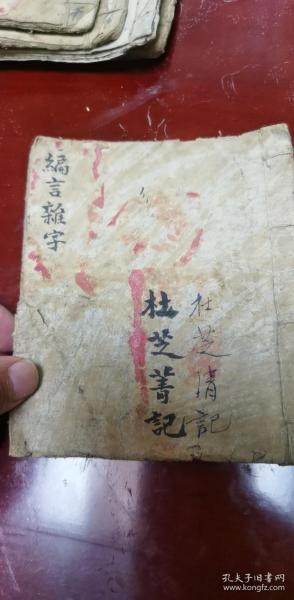 編言雜字
杜芝菁記
杜芝清記
孔夫子旧书网
www.kongfz.com